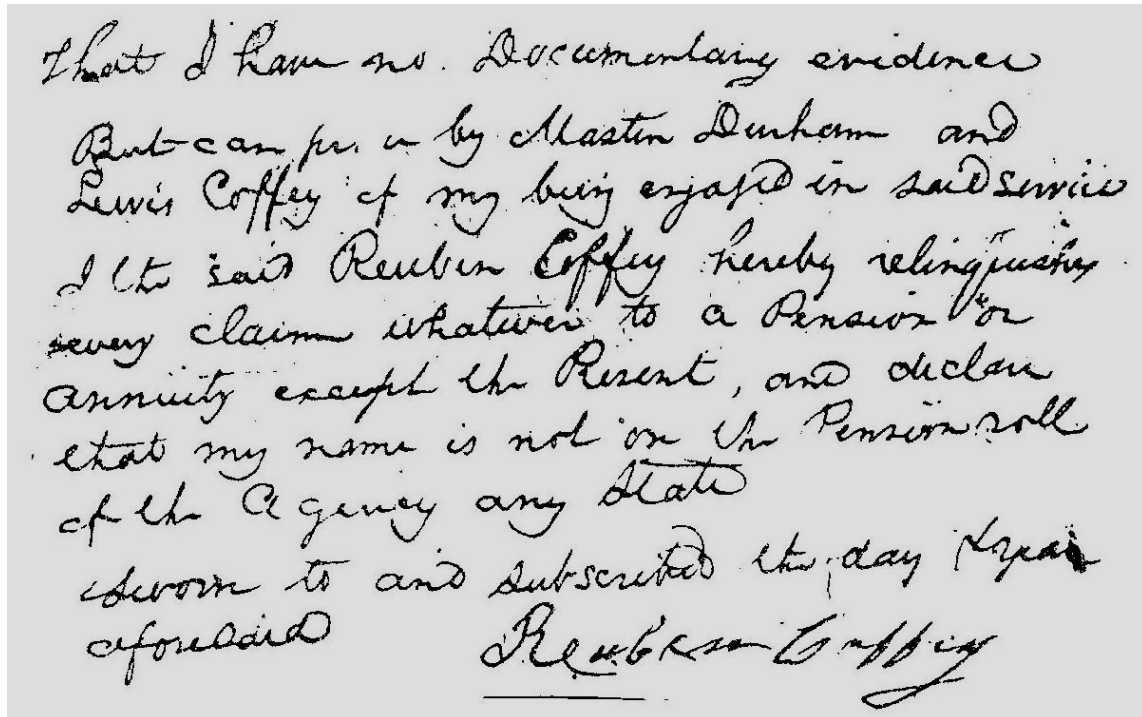 that I have no. Documentary evidence
But can by Mastin Durham and
Lewis Coffey of my being engaged in said service
I the said Reuben Coffey hereby relinquishes
every claim whatever to a Pension or
annuity except the Present, and declare
that my name is not on the Pension roll
of the Agency any State
sworn to and subscribed the day & year
aforesaid
Reuben Cuffey